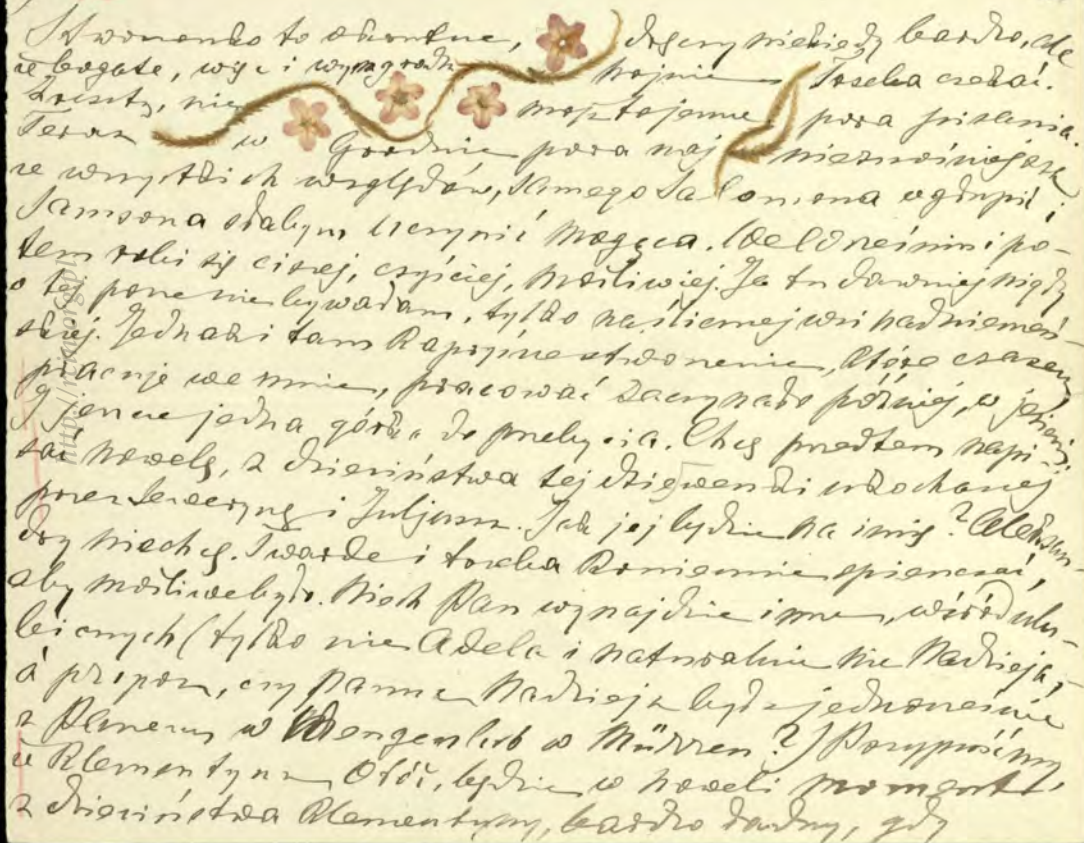 Stworzonko to okrutne, dręczy niekiedy bardzo, ale
że bogate, więc i wynagrodzi hojnie. Trzeba czekać.
Zresztą, nie pora pisania.
Teraz w Grodnie pora naj nieznośniejsza
ze wszystkich względów, samego Salomona ogłupić i
Samsona słabym uczynić mogąca. We wrześniu i po-
tem robi się ciszej, czyściej, możliwiej. Ja tu dawniej nigdy
o tej porze nie bywałam, tylko na ślicznej wsi nadniemeń-
skiej. Jednak i tam kapryśne stworzenie, które czasem
pracuje we mnie, pracować zaczynało później, w jesieni.
I jeszcze jedna górka do przebycia. Chcę przedtem napi-
sać nowelę, z dzieciństwa tej dziewenki ukochanej
przez Seweryna i Juljusza. Jak jej będzie na imię? Aleksan-
dry nie chcę. Twarde i trzeba koniecznie spieszczać,
aby możliwe było. Niech Pan wynajdzie imię, wśród ulu-
bionych (tylko nie Adela i naturalnie nie Nadzieja;
à propos, czy Panna Nadzieja będzie jednocześnie
z Panem w Wengen lub w Mürren?) Przypuśćmy,
że Klementyna. Otóż, będzie w noweli moment
z dzieciństwa Klementyny, bardzo ładny, gdy